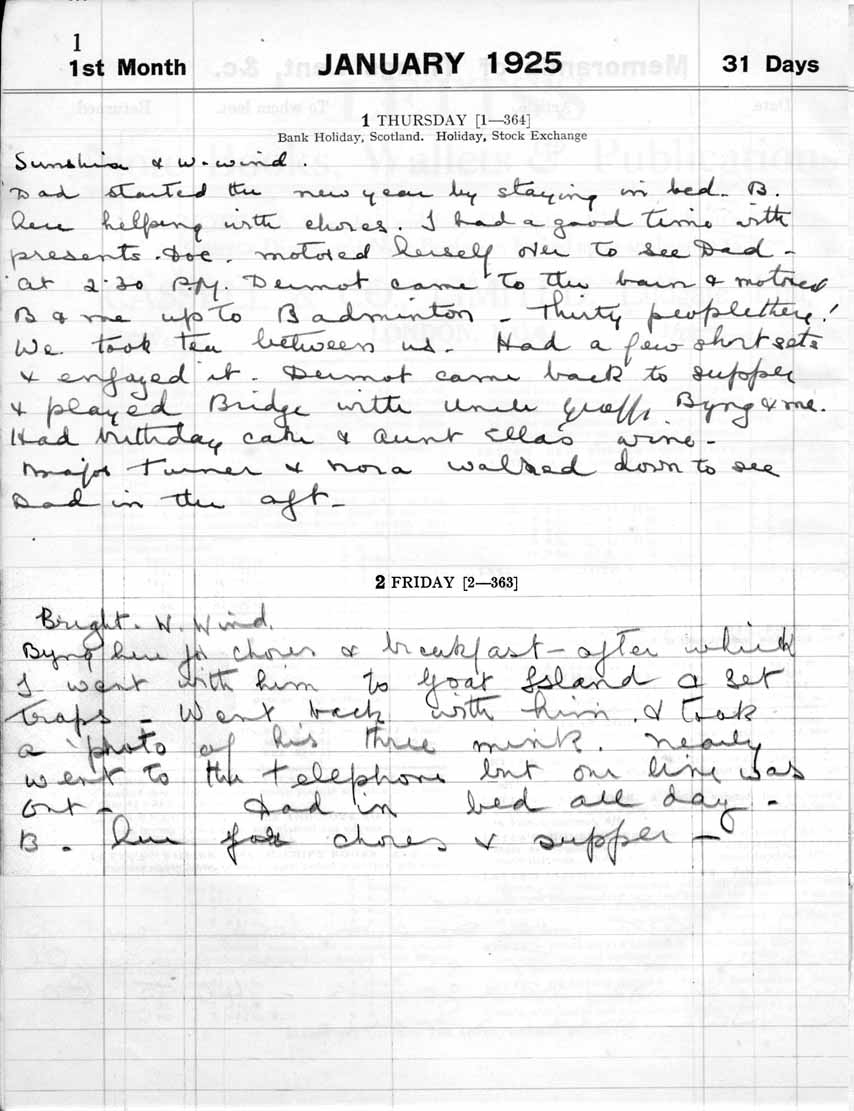 1
1st Month JANUARY 1925 31 Days
1 THURSDAY [1—364]
Bank Holiday, Scotland. Holiday, Stock Exchange
Sunshine & W. wind.
Dad started the new year by staying in bed. B.
here helping with chores. I had a good time with
presents. Doc. motored herself over to see Dad -
at 2.30 P.M. Dermot came to the barn & motored
B & me up to Badminton - Thirty people there!
We took tea between us. Had a few short sets
& enjoyed it. Dermot came back to supper
& played Bridge with Uncle Geoff. Byng & me.
Had birthday cake & Aunt Ella's wine -
Major Turner & Nora walked down to see
Dad in the aft -
2 FRIDAY [2—363]
Bright. W. Wind.
Byng here for chores & breakfast - after which
I went with him to Goat Island & set
traps - Went back with him & took
a photo of his three mink. Nearly
went to the telephone but our line was
out - Dad in bed all day -
B. here for chores & supper -